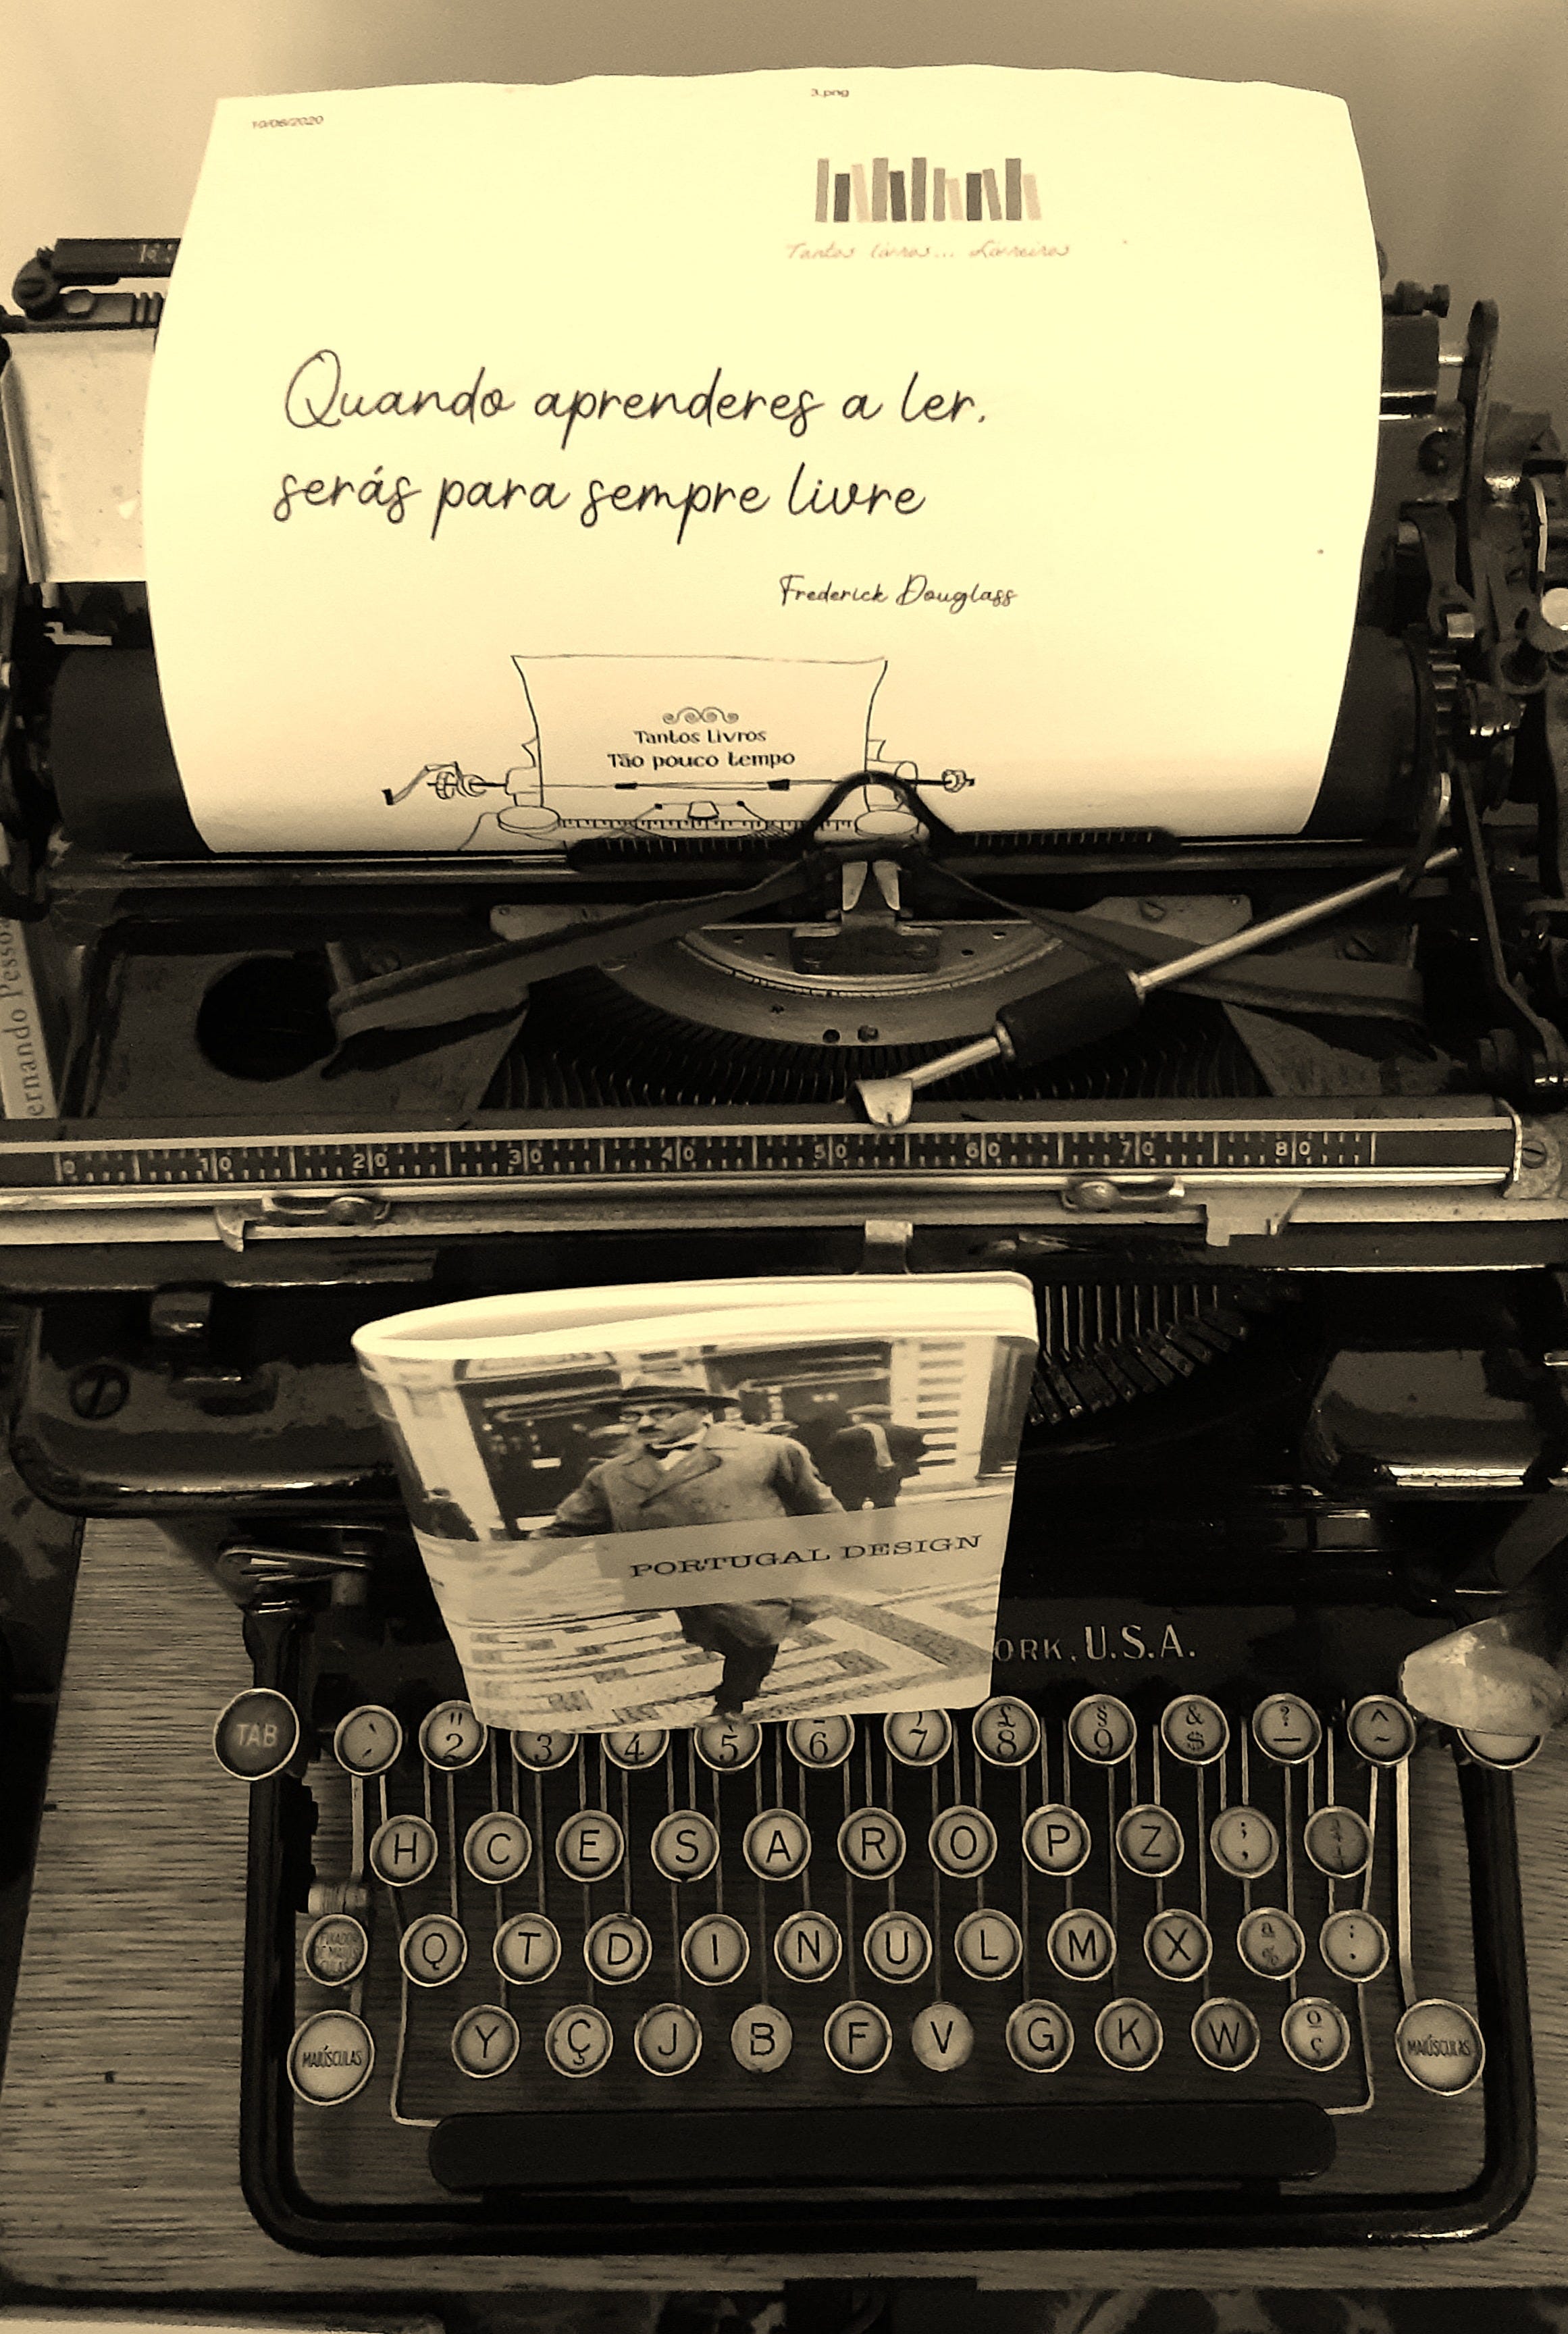 3.png
10/06/2020
Tantos livros... Livreiros
Quando aprenderes a ler,
serás para sempre livre
Frederick Douglass
Tantos Livros
Tão pouco tempo
ernando Pessoa
0 10 20 30 40 50 60 70 80
PORTUGAL DESIGN
ORK, U.S.A.
TAB
" 2 3 4 5 6 7 £ 8 § 9 & $ ? _ ^ ~
H C E S A R O P Z ; ,
FIXADOR DE MAIÚSCULAS Q T D I N U L M X a % : .
MAIÚSCULAS Y Ç J B F V G K W o ç MAIÚSCULAS